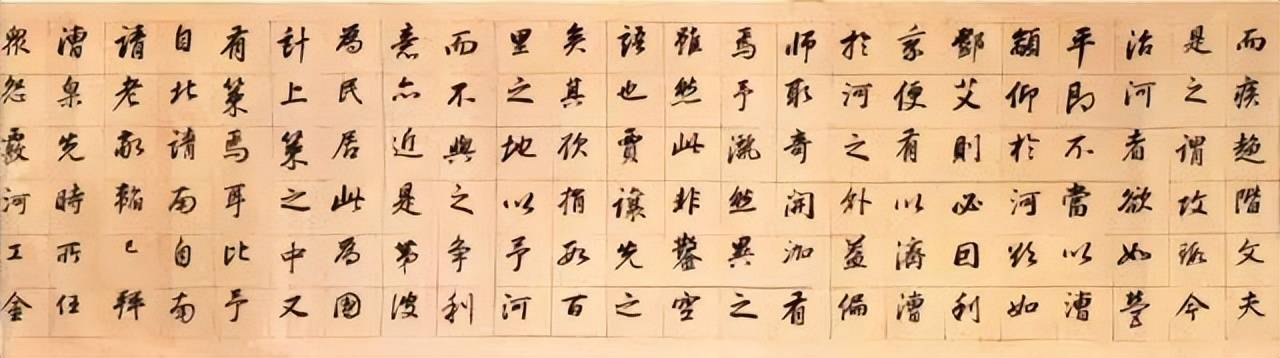 而疾趨階文夫
是之謂攻瑕今
治河者欲如營
平即不當以漕
額仰於河如
鄧艾則必因利
乘便有以濟漕
於河之外蓋偏
師取奇開泇有
焉予灑然異之
雖然此非鑿空
語也賈讓先之
矣其欲捐數百
里之地以予河
而不與之爭利
意亦近是第彼
為民居此為國
計上策之中又
有策焉耳比予
自北請南自南
請老敬韜已拜
漕臬先時所任
眾怨覈河工金